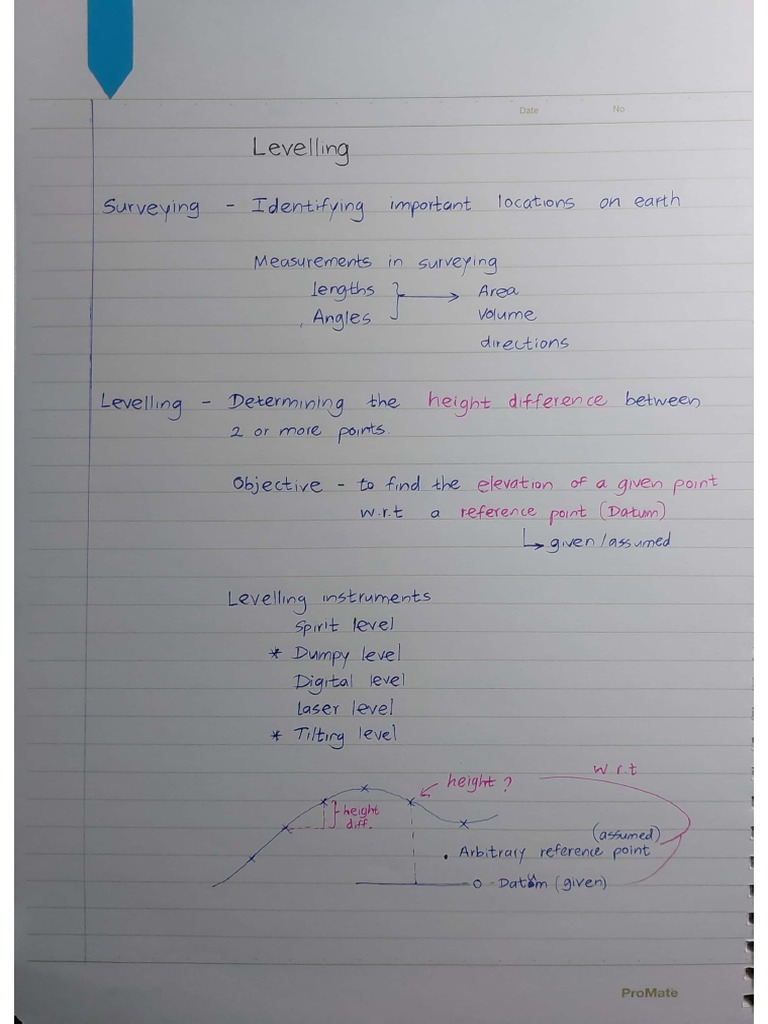 Date No
Levelling
Surveying - Identifying important locations on earth
Measurements in surveying
lengths Area
Angles Volume
directions
Levelling - Determining the height difference between
2 or more points.
Objective - to find the elevation of a given point
w.r.t a reference point (Datum)
given/assumed
Levelling instruments
Spirit level
* Dumpy level
Digital level
Laser level
* Tilting level
w r.t
height ?
height
diff.
(assumed)
Arbitrary reference point
0 - Datum (given)
ProMate